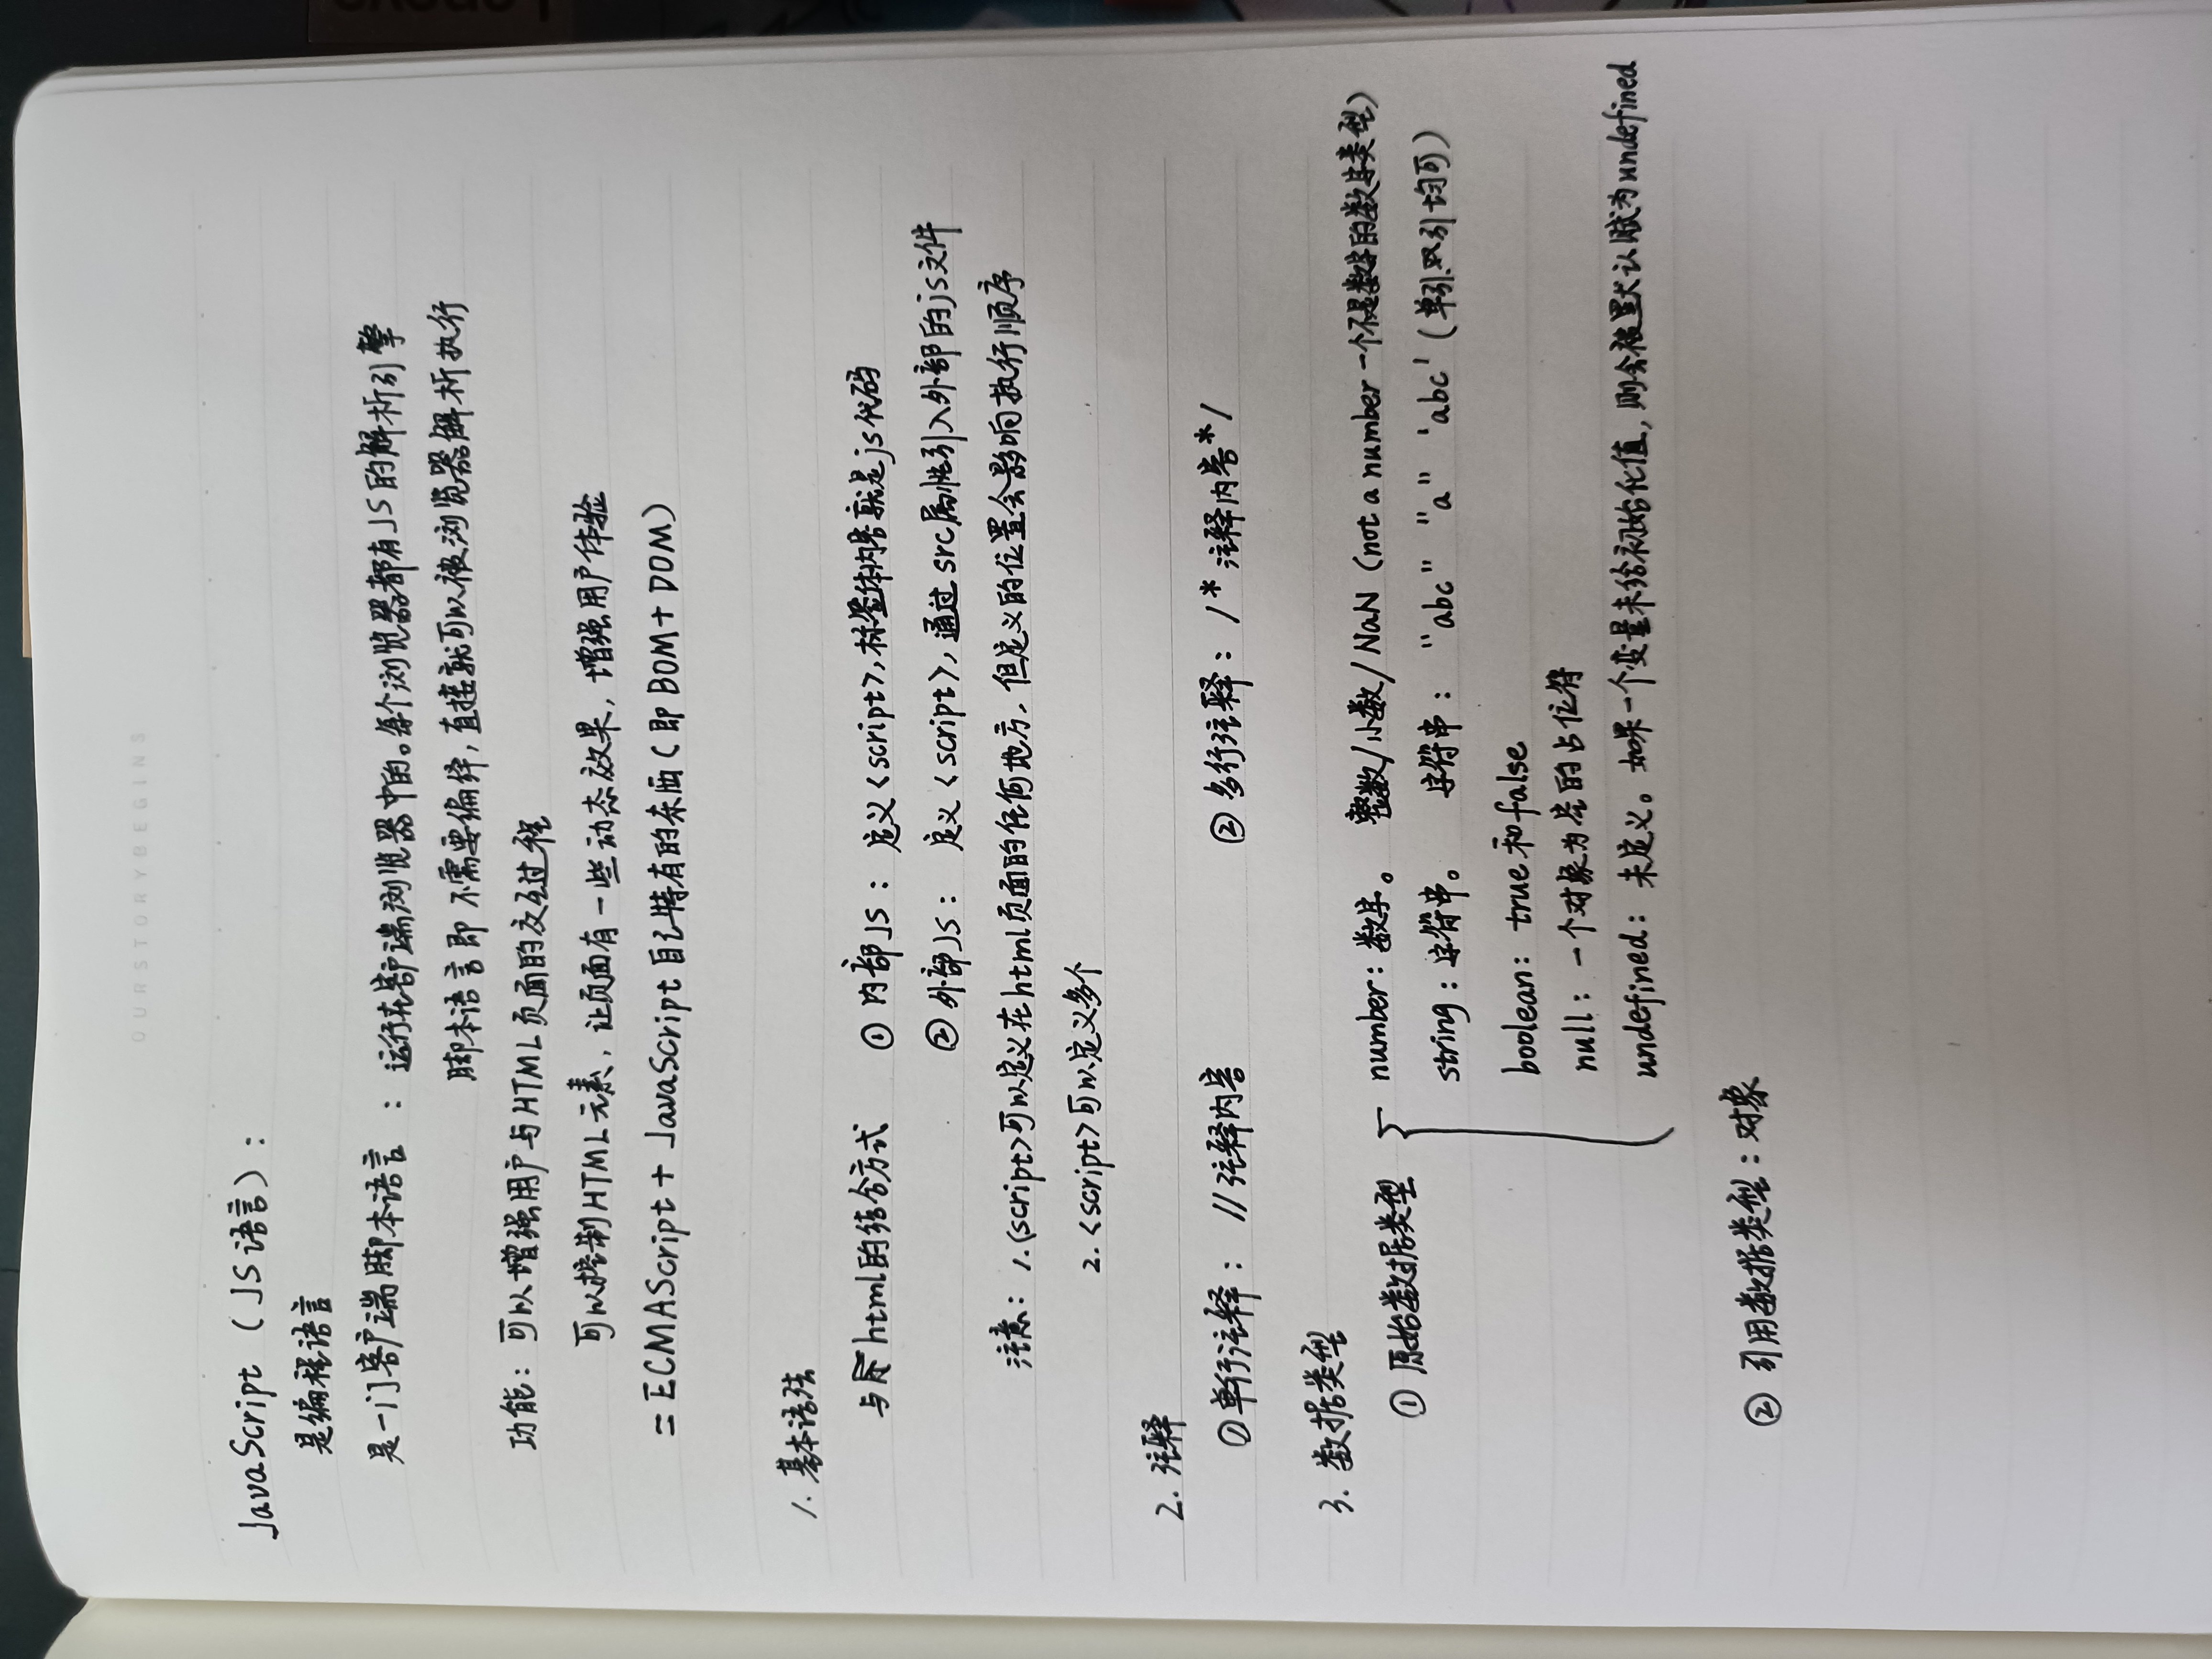 OURSTORYBEGINS
JavaScript （JS语言）:
是编程语言
是一门客户端脚本语言 : 运行在客户端浏览器中的。每个浏览器都有JS的解析引擎
脚本语言即 不需要编译,直接就可以被浏览器解析执行
功能: 可以增强用户与HTML页面的交互过程
可以控制HTML元素，让页面有一些动态效果，增强用户体验
= ECMAScript + JavaScript自己特有的东西（即BOM+DOM）
1. 基本语法
与html的结合方式 ① 内部JS: 定义<script>,标签体内容就是js代码
② 外部JS: 定义<script>,通过src属性引入外部的js文件
注意: 1.<script>可以定义在html页面的任何地方，但定义的位置会影响执行顺序
2.<script>可以定义多个
2. 注释
① 单行注释: //注释内容 ② 多行注释: /*注释内容*/
3. 数据类型
① 原始数据类型 { number: 数字。 整数/小数/NaN（not a number 一个不是数字的数字类型）
string: 字符串。 字符串: "abc" "a" 'abc'（单引双引均可）
boolean: true和false
null: 一个对象为空的占位符
undefined: 未定义。如果一个变量未给初始化值，则会被默认赋为undefined
② 引用数据类型:对象